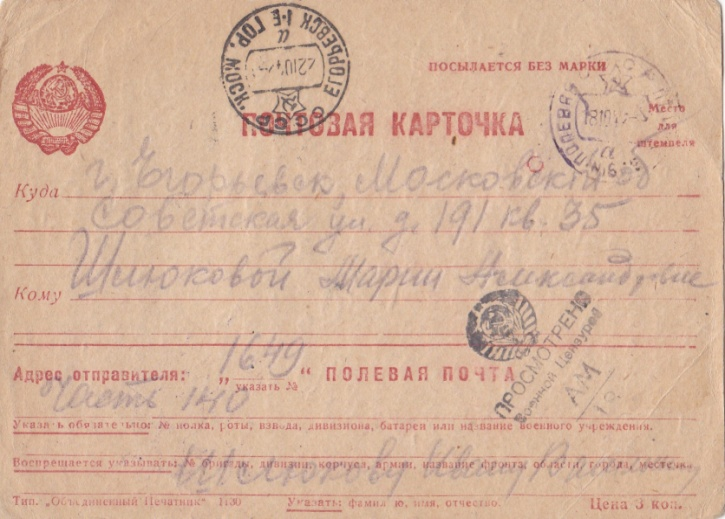 ЕГОРЬЕВСК 1-Е ГОР. МОСК.
ПОСЫЛАЕТСЯ БЕЗ МАРКИ
ПОЧТОВАЯ КАРТОЧКА
Место
для
штемпеля
ПОЛЕВАЯ
Куда г. Егорьевск Московский
Советская ул. д. 191 кв. 35
Кому Шлюковой Марии Александровне
ПРОСМОТРЕНО
Военной Цензурой
Адрес отправителя: „ 1649 “ ПОЛЕВАЯ ПОЧТА
указать №
Часть 140
Указать обязательно: № полка, роты, взвода, дивизиона, батареи или название военного учреждения.
Воспрещается указывать: № бригады, дивизии, корпуса, армии, название фронта, области, города, местечка
Шлюкову Ивану
Тип. „Объединенный Печатник" 1130 Указать: фамилию, имя, отчество. Цена 3 коп.